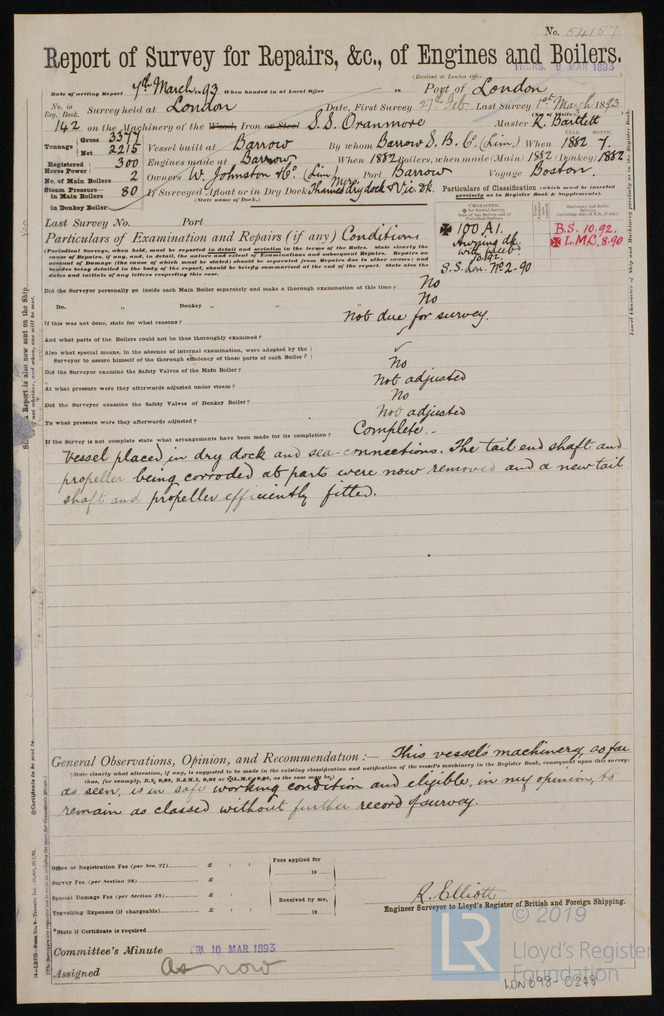 No. 54157
Report of Survey for Repairs, &c., of Engines and Boilers.
(Received at London Office THURS. 9 MAR 1893
Date of writing Report 7th March 93 When handed in at Local Office 18 Port of London
No. in Reg. Book. Survey held at London Date, First Survey 27th Feb Last Survey 1st March 1893
142 on the Machinery of the Wood, Iron or Steel S.S. Oranmore Master R. Bartlett
Tonnage Gross 3377 Net 2215 Vessel built at Barrow By whom Barrow S. B. Co. (Lim.) When YEAR. 1882 MONTH. 7.
Registered Horse Power 300 Engines made at Barrow When 1882 Boilers, when made (Main) 1882 (Donkey) 1882
No. of Main Boilers 2 Owners W. Johnston & Co. (Lim Port Barrow Voyage Boston.
Steam Pressure in Main Boilers 80 If Surveyed Afloat or in Dry Dock Thames Dry dock & Vic. Dk.
(State name of Dock.)
in Donkey Boiler
Particulars of Classification (which must be inserted precisely as in Register Book & Supplements).
Last Survey No. Port
✠ 100 A1.
Awning dk.
S.S. Lon. No. 2-90
B.S. 10.92.
✠ L.M.C. 8.90
Particulars of Examination and Repairs (if any) Condition
(Periodical Surveys, when held, must be reported in detail and seriatim in the terms of the Rules. State clearly the
cause of Repairs, if any, and, in detail, the nature and extent of Examinations and subsequent Repairs. Repairs on
account of Damage (the cause of which must be stated) should be separated from Repairs due to other causes; and
besides being detailed in the body of the report, should be briefly summarised at the end of the report. State also the
dates and initials of any letters respecting this case.
Did the Surveyor personally go inside each Main Boiler separately and make a thorough examination at this time? No
Do. " Donkey " " " No
If this was not done, state for what reasons? Not due for survey.
And what parts of the Boilers could not be thus thoroughly examined?
Also what special means, in the absence of internal examination, were adopted by the
Surveyor to assure himself of the thorough efficiency of those parts of each Boiler?
Did the Surveyor examine the Safety Valves of the Main Boiler? No
At what pressure were they afterwards adjusted under steam? Not adjusted
Did the Surveyor examine the Safety Valves of Donkey Boiler? No
To what pressure were they afterwards adjusted? Not adjusted
If the Survey is not complete state what arrangements have been made for its completion? Complete.
Vessel placed in dry dock and sea-connections. The tail end shaft and
propeller being corroded at parts were now removed and a new tail
shaft and propeller efficiently fitted.
General Observations, Opinion, and Recommendation:— This vessel's machinery, as far
(State clearly what alteration, if any, is suggested to be made in the existing classification and notification of the vessel's machinery in the Register Book, consequent upon this survey:
as seen, is in safe working condition and eligible, in my opinion, to
remain as classed without further record of survey.
Office or Registration Fee (per Sec. 27) £
Fees applied for
18
Survey Fee (per Section 28) £
Special Damage Fee (per Section 28) £
Received by me,
18
Travelling Expenses (if chargeable) £
R. Elliott
Engineer Surveyor to Lloyd's Register of British and Foreign Shipping.
*State if Certificate is required
Committee's Minute FRI 10 MAR 1893
Assigned As now
LR
© 2019
Lloyd's Register
Foundation
LON698-0248